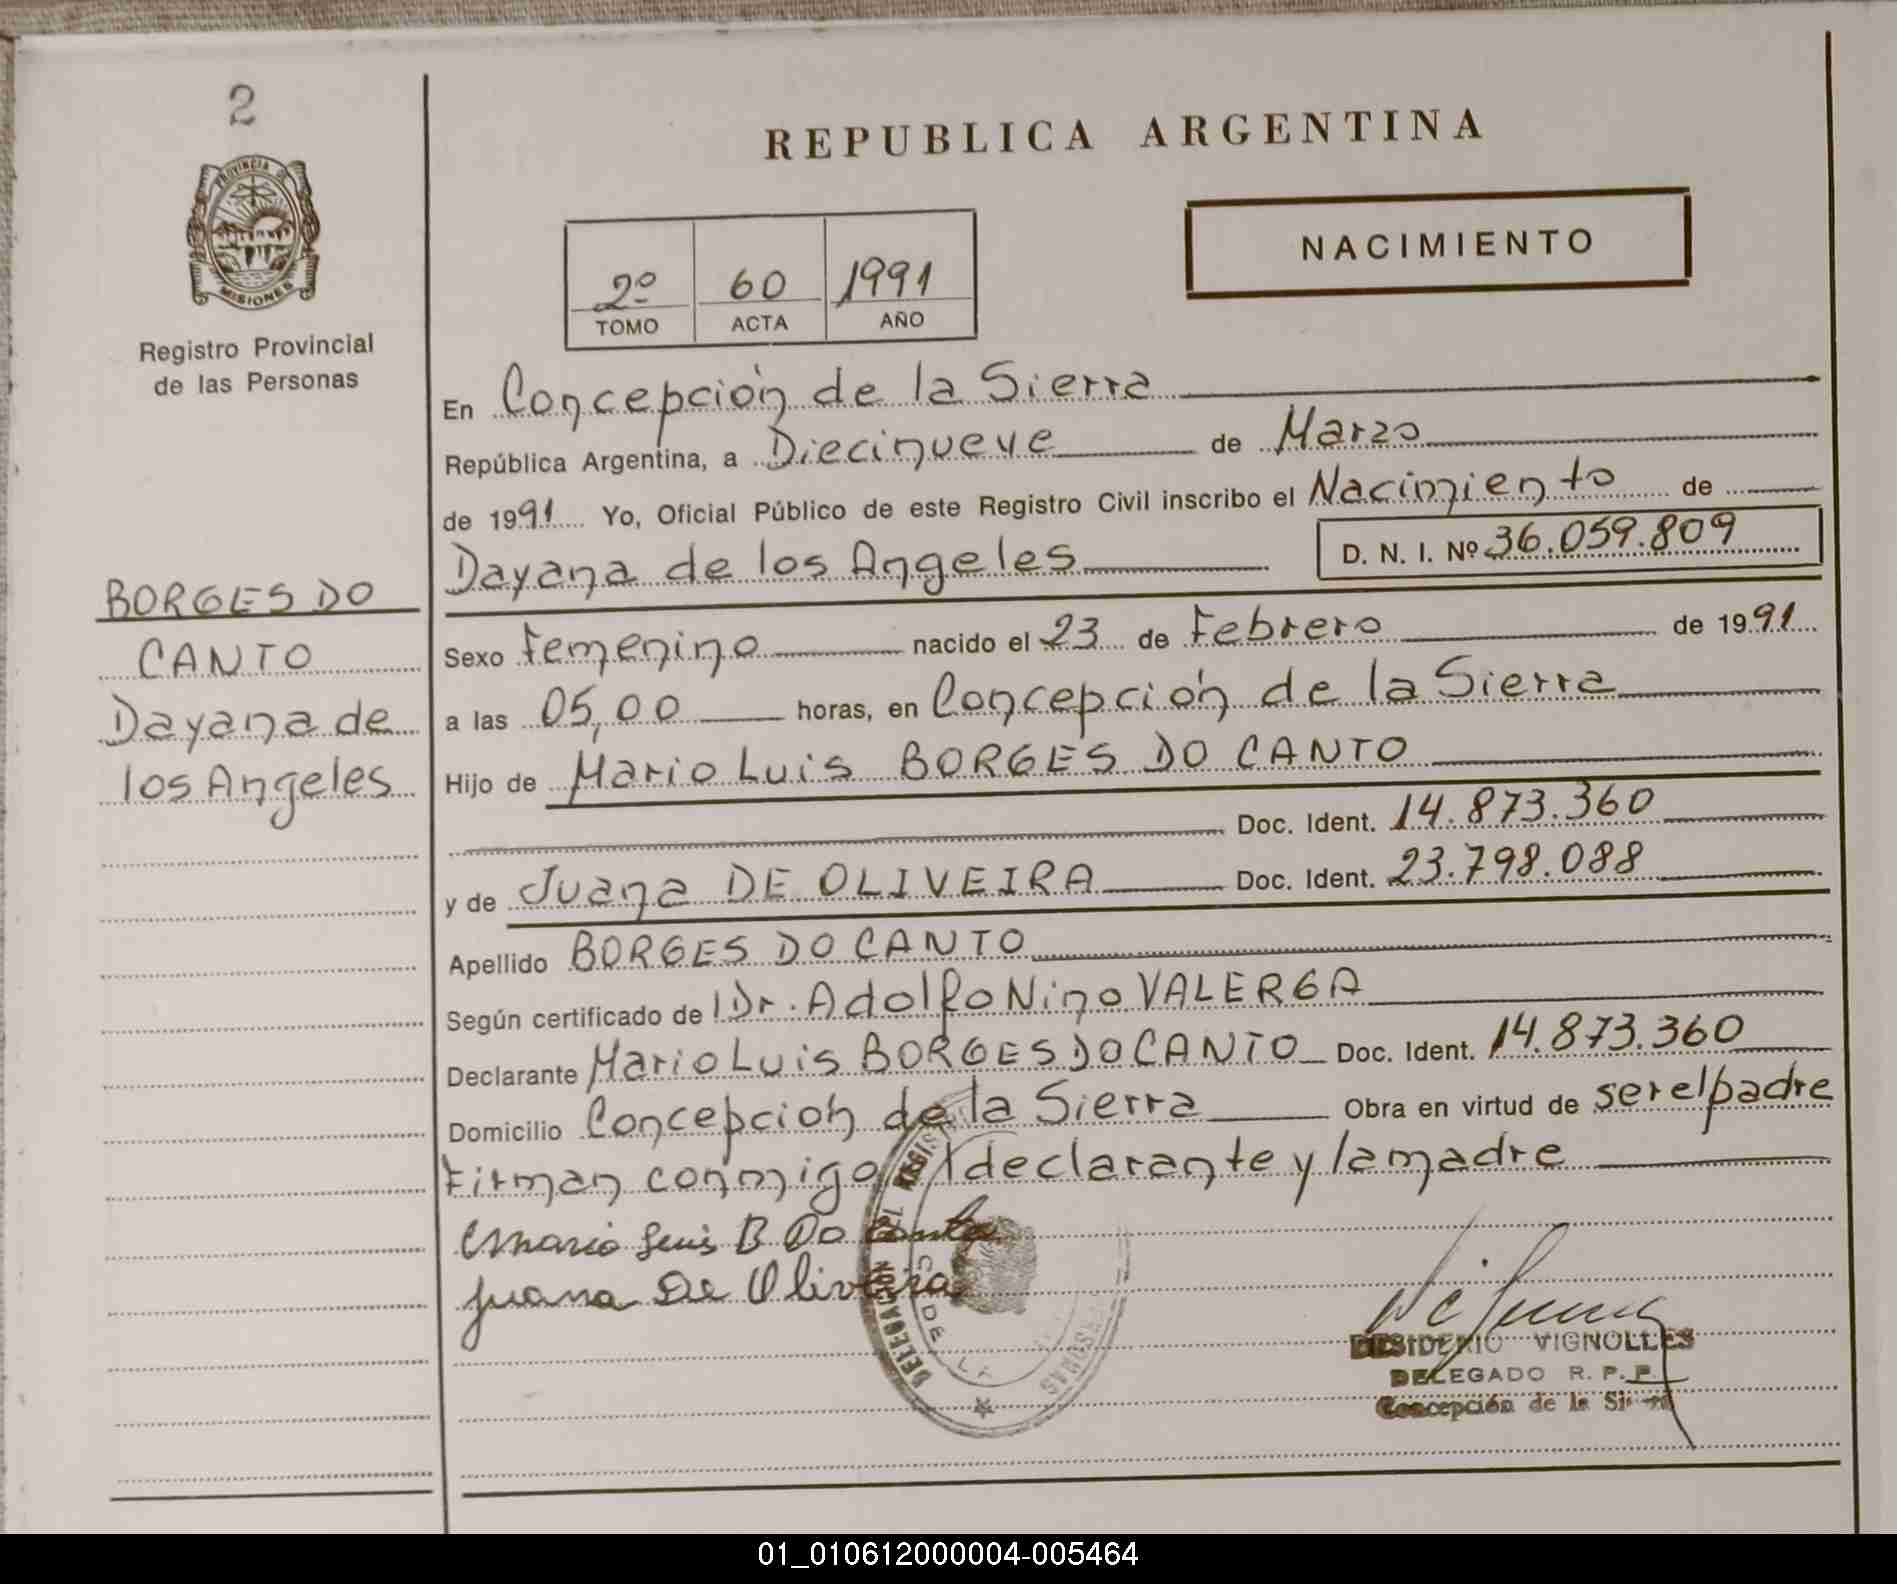 2
PROVINCIA DE
MISIONES
Registro Provincial
de las Personas
BORGES DO
CANTO
Dayana de
los Angeles
REPUBLICA ARGENTINA
NACIMIENTO
2º 60 1991
TOMO ACTA AÑO
En Concepción de la Sierra
República Argentina, a Diecinueve de Marzo
de 1991 Yo, Oficial Público de este Registro Civil inscribo el Nacimiento de
Dayana de los Angeles D. N. I. Nº 36.059.809
Sexo Femenino nacido el 23 de Febrero de 1991
a las 05,00 horas, en Concepción de la Sierra
Hijo de Mario Luis BORGES DO CANTO
Doc. Ident. 14.873.360
y de Juana DE OLIVEIRA Doc. Ident. 23.798.088
Apellido BORGES DO CANTO
Según certificado de Dr. Adolfo Nino VALERGA
Declarante Mario Luis BORGES DO CANTO Doc. Ident. 14.873.360
Domicilio Concepcion de la Sierra Obra en virtud de ser el padre
Firman conmigo declarante y la madre
Mario Luis B Do Canto
Juana De Oliveira
DESIDERIO VIGNOLLES
DELEGADO R. P. P.
Concepción de la Sierra
01_010612000004-005464